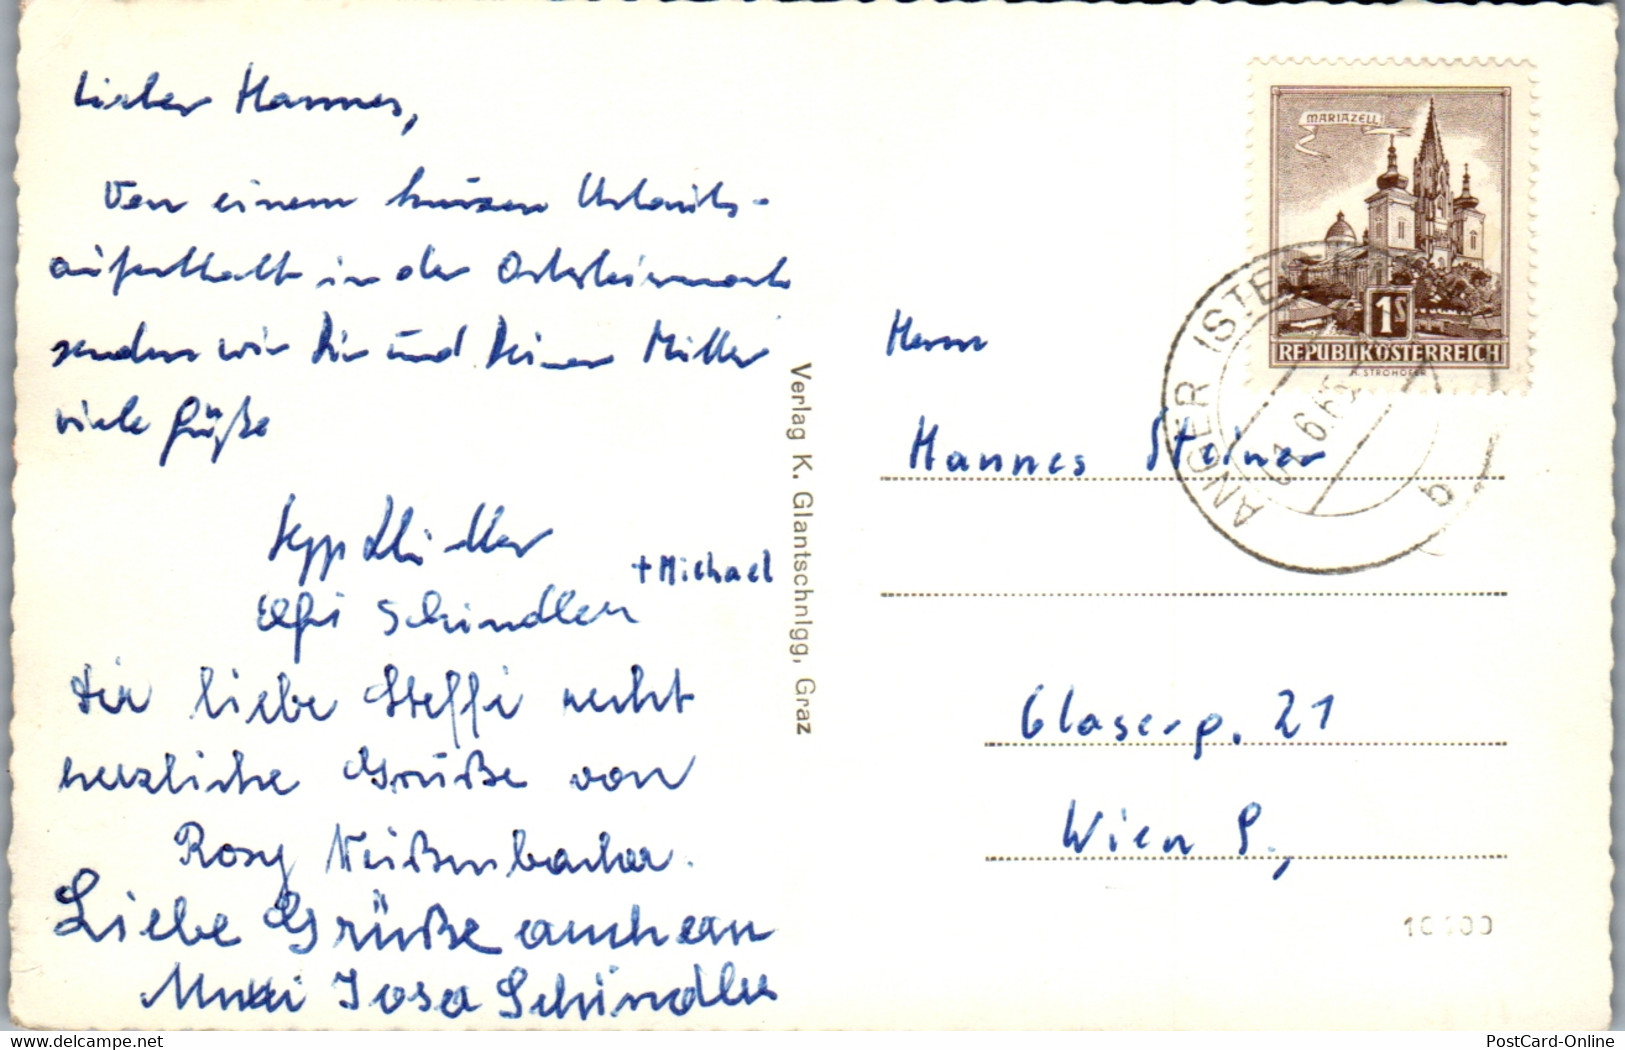 Lieber Hannes,
Von einem kurzen Urlaubs-
aufenthalt in der Oststeiermark
senden wir Dir und Deiner Mutter
viele Grüße
Sepp Schindler
+ Michael
Elfi Schindler
Dir liebe Steffi recht
herzliche Grüße von
Rosy Weißenbacher.
Liebe Grüße auch an
Mutti Josa Schindler
Verlag K. Glantschnigg, Graz
MARIAZELL
1S
REPUBLIK ÖSTERREICH
A. STROHOFER
ANGER
6.65
b
Herrn
Hannes Steiner
Glaserg. 21
Wien 9.,
PostCard-Online